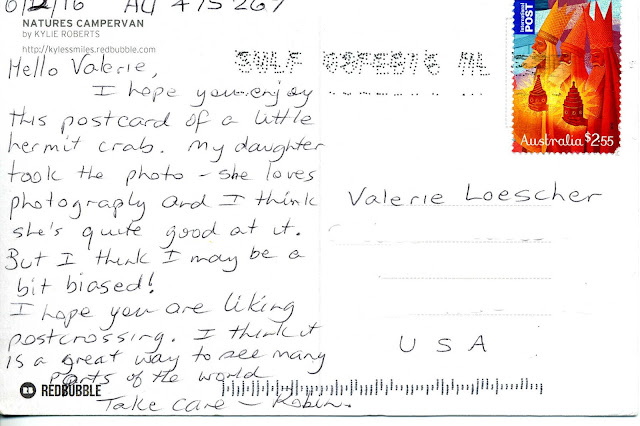 6/12/16 AU 475267
NATURES CAMPERVAN
by KYLIE ROBERTS
http://kylessmiles.redbubble.com
Hello Valerie,
I hope you enjoy
this postcard of a little
hermit crab. My daughter
took the photo - she loves
photography and I think
she's quite good at it.
But I think I may be a
bit biased!
I hope you are liking
postcrossing. I think it
is a great way to see many
parts of the world
Take care - Robin.
RB REDBUBBLE
International
POST
Australia $2.55
Valerie Loescher
USA